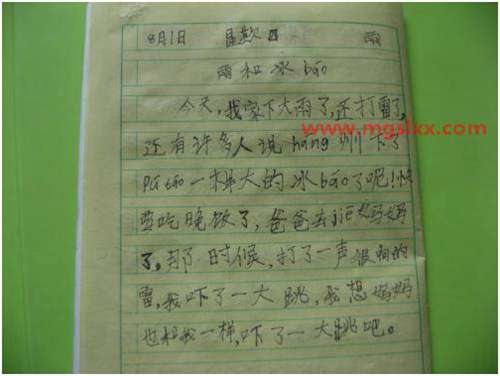 8月1日 星期日 雨
雨和冰báo
今天,我家下大雨了,还打雷了,
www.mgslxx.com
还有许多人说háng州下了
pú táo一样大的冰báo了呢!快
要吃晚饭了,爸爸去jiē妈妈
了,那时候,打了一声很响的
雷,我吓了一大跳,我想妈妈
也和我一样,吓了一大跳吧。